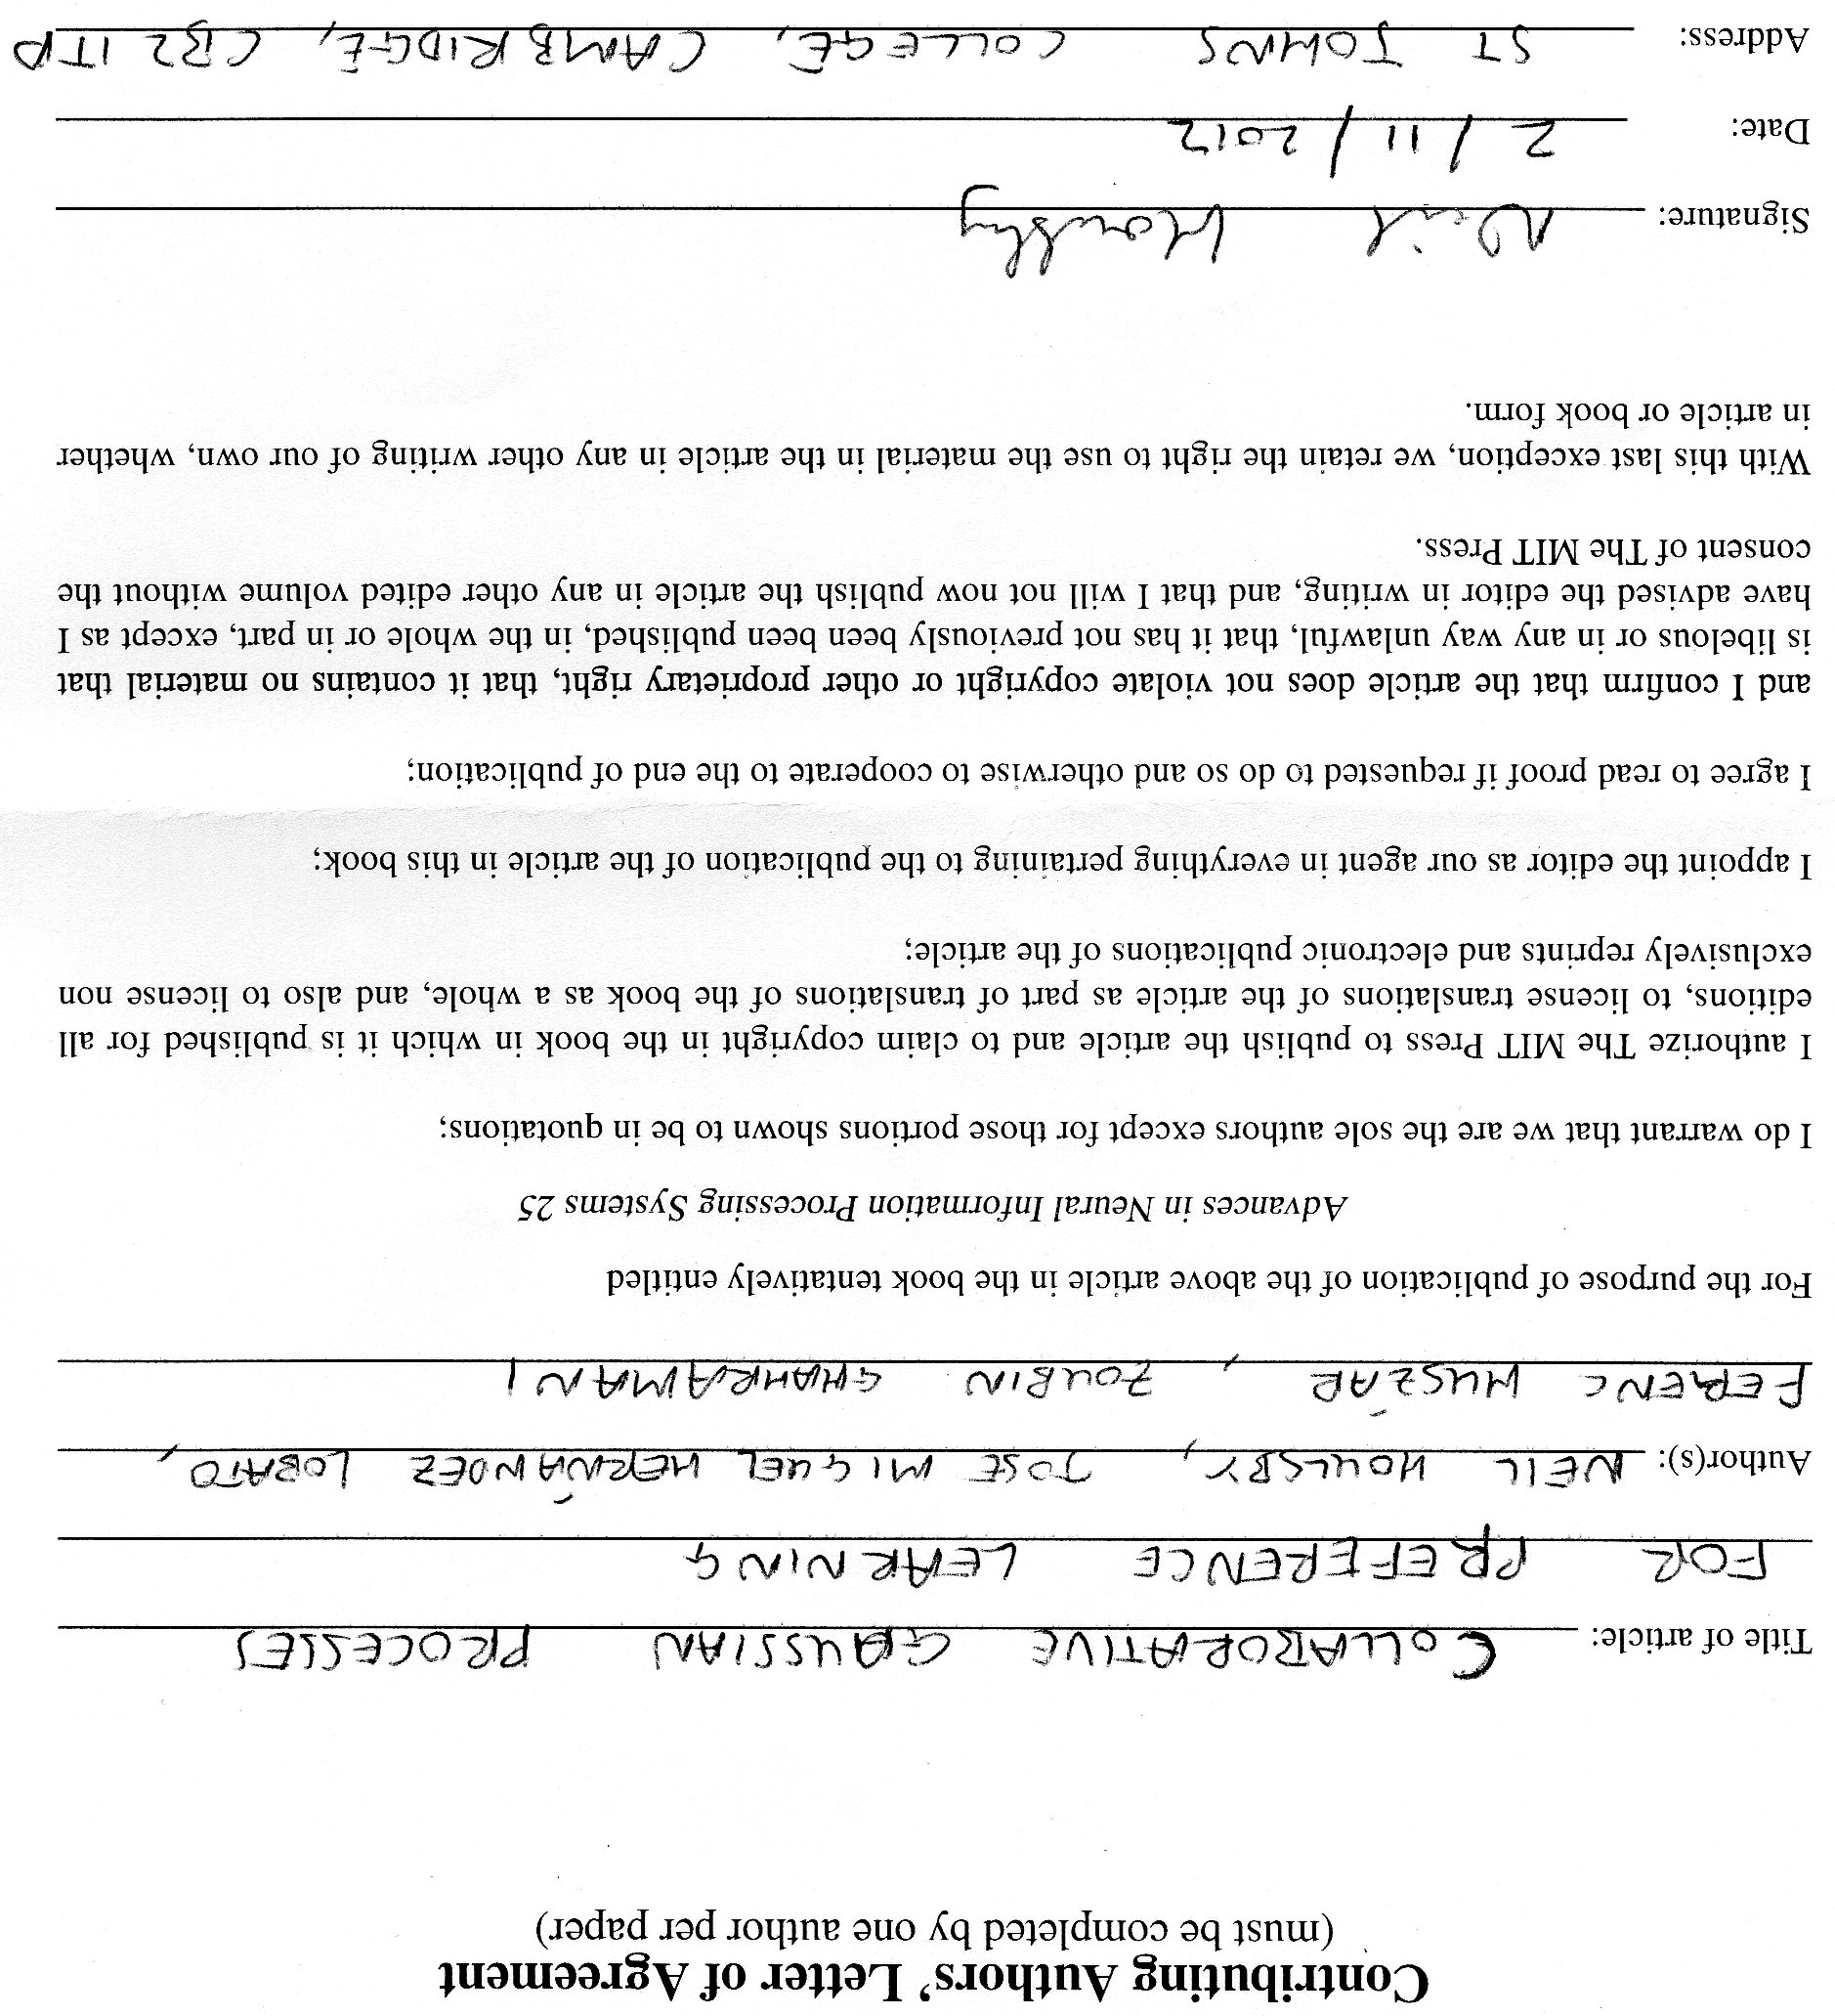 Contributing Authors' Letter of Agreement
(must be completed by one author per paper)
Title of article: COLLABORATIVE GAUSSIAN PROCESSES
FOR PREFERENCE LEARNING
Author(s): NEIL HOULSBY, JOSE MIGUEL HERNÁNDEZ LOBATO,
FERENC HUSZÁR, ZOUBIN GHAHRAMANI
For the purpose of publication of the above article in the book tentatively entitled
Advances in Neural Information Processing Systems 25
I do warrant that we are the sole authors except for those portions shown to be in quotations;
I authorize The MIT Press to publish the article and to claim copyright in the book in which it is published for all
editions, to license translations of the article as part of translations of the book as a whole, and also to license non
exclusively reprints and electronic publications of the article;
I appoint the editor as our agent in everything pertaining to the publication of the article in this book;
I agree to read proof if requested to do so and otherwise to cooperate to the end of publication;
and I confirm that the article does not violate copyright or other proprietary right, that it contains no material that
is libelous or in any way unlawful, that it has not previously been been published, in the whole or in part, except as I
have advised the editor in writing, and that I will not now publish the article in any other edited volume without the
consent of The MIT Press.
With this last exception, we retain the right to use the material in the article in any other writing of our own, whether
in article or book form.
Signature: Neil Houlsby
Date: 2/11/2012
Address: ST JOHNS COLLEGE, CAMBRIDGE, CB2 1TP